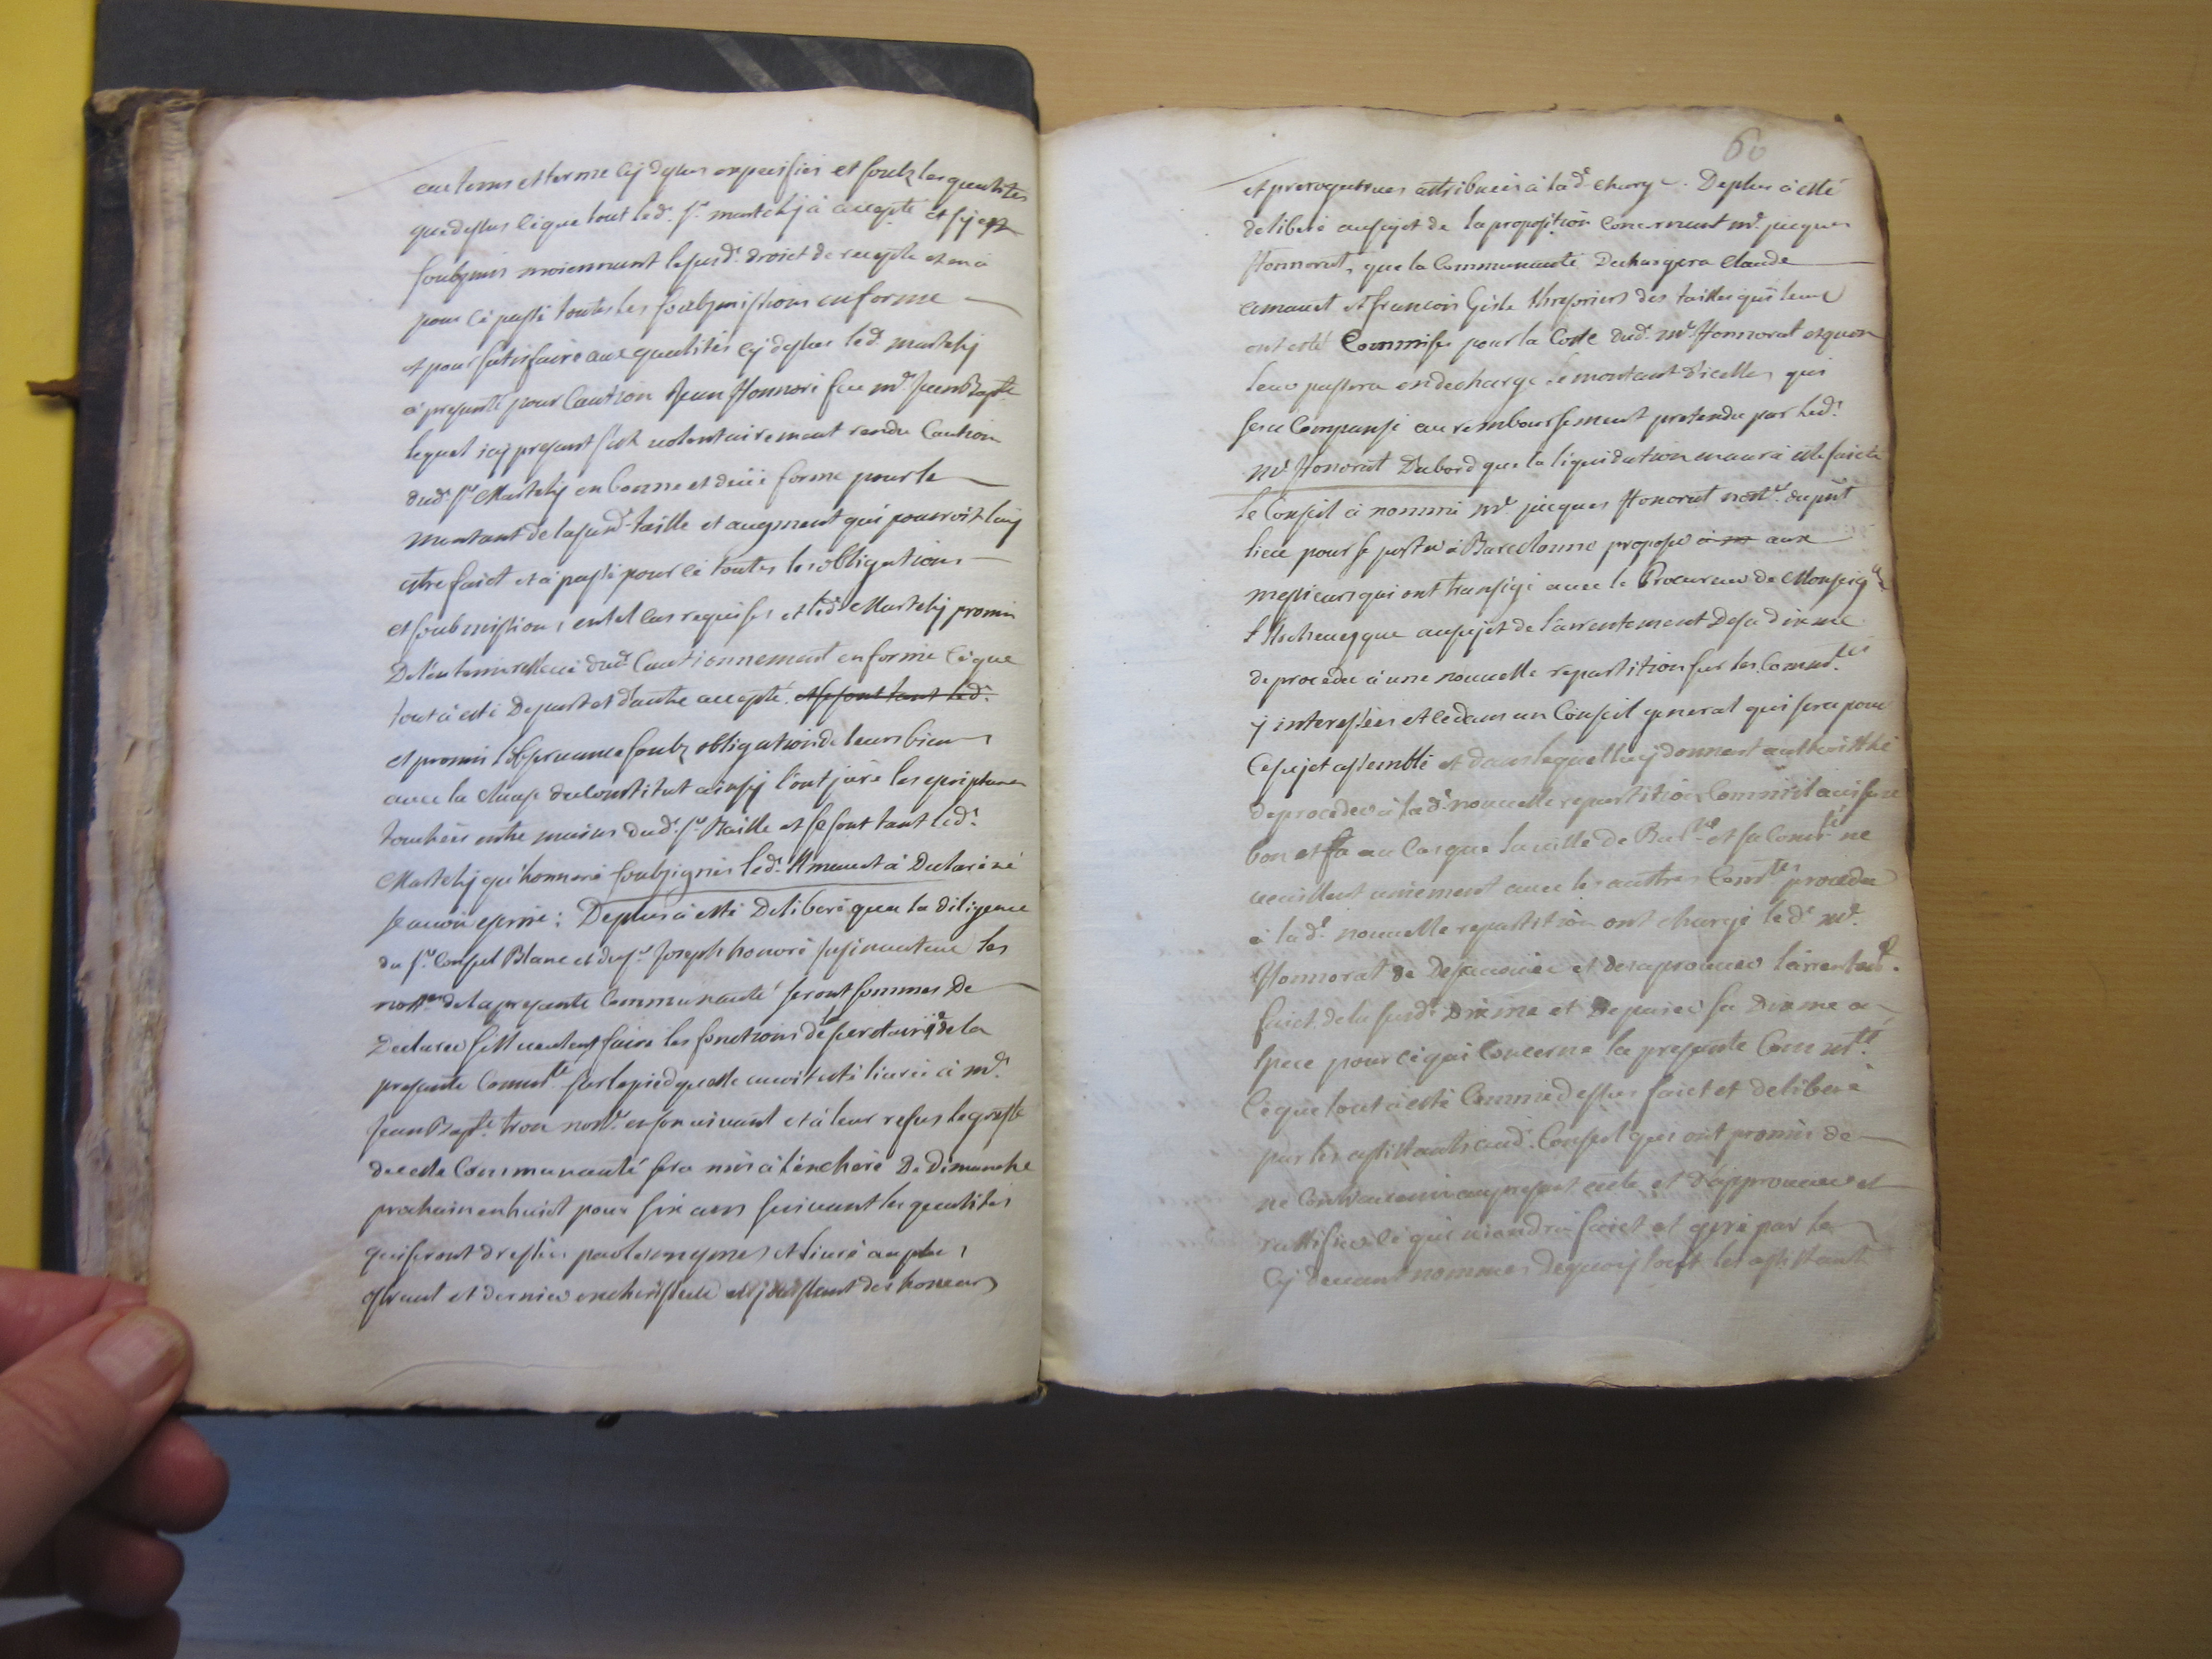 aux tems et terme cy dessus expecifies et soubz les qualités
que dessus ce que tout led. sr. martely à accepté et s'y est
soubzmis moiennant le susd. droict de recepte et en à
pour ce passé toutes les soubzmissions en forme
et pour satisfaire aux qualités cy dessus led. martely
à presanté pour Caution Jean Honnoré feu mr. Jean Bapte.
lequel icy presant s'est volontairement rendu Caution
dud. sr. Martely en bonne et deüe forme pour le
montant de la susd. taille et augment qui pouvroit luy
estre faict et à passé pour ce toutes les obligations
et soubmissions en tel cas requises et led. Martely promis
De l'en tenir relevé dud. Cautionnement en forme ce que
tout à esté De part et d'autre accepté. et se sont tant led.
et promis l'observance soubz obligation de leurs biens
avec la clause du Constitut ainsy l'ont juré les escriptures
touchées entre mains dud. sr. Baille et se sont tant led.
Martely qu'honnoré soubzsignés led. Amauet à Declaré ne
scavoir escrire : De plus à esté Deliberé qu'a la diligence
du sr. Consul Blanc et du sr. Joseph honoré les
nottres. de la presante Communauté seront sommes De
Declarer s'ils veulent faire les fonctions de secretaire de la
presante Commté. sur le pied qu'elle avoit esté livrée à mr.
Jean Bapte. tron nottre. en son vivant et à leur refus le greffe
de cette Communauté sera mis à l'enchere De Dimanche
prochain en huict pour six ans suivant les qualités
qui seront dressées par les mesmes et livré au plus
offrant et dernier encherisseur et jouissant des honeurs
60
et prerogatives attribuées à lad. charge. De plus à esté
deliberé au sujet de la proposition Concernant mr. jacques
Honnorat, que la Communauté Dechargera Claude
amauet et francois thresoriers des tailles qui leur
ont esté Commises pour la Cotte dud. mr. Honnorat et qu'on
leur passera en decharge le montant d'icelles qui
sera Compansé au remboursement pretendu par led.
mr. Honorat D'abord que la liquidation en aura esté faicte
le Conseil à nommé mr. jacques Honorat nottre. du pnt
lieu pour se porter à Barcelonne proposer à m aux
messieurs qui ont transigé avec le Procureur de Monseigr.
l'Archeuesque au sujet de l'arrentement De sa dixme
de proceder à une nouvelle repartition sur les Commtés.
y interessées et ce dans un Conseil general qui sera pour
ce sujet assemblé et dans lequel luy donnent authoritté
de proceder à lad. nouvelle repartition Comme il avisera
bon et la au Cas que la ville de Barne. et sa Commté. ne
veuillent uniement avec les autres Commtés. proceder
à lad. nouvelle repartition ont chargé led. mr.
Honnorat de Desavouer et desaprouver l'arrentemt.
faict de la susd. Dixme et De paier sa Dixme a
lpece pour ce qui Concerne la presante Commté.
Ce que tout à esté Comme dessus faict et deliberé
par les assistants aud. Conseil qui ont promis de
ne Contrevenir au present acte et d'approuver et
rattifier ce qui viendra faict et geré par les
Cy devant nommes De quoy tout les assistants